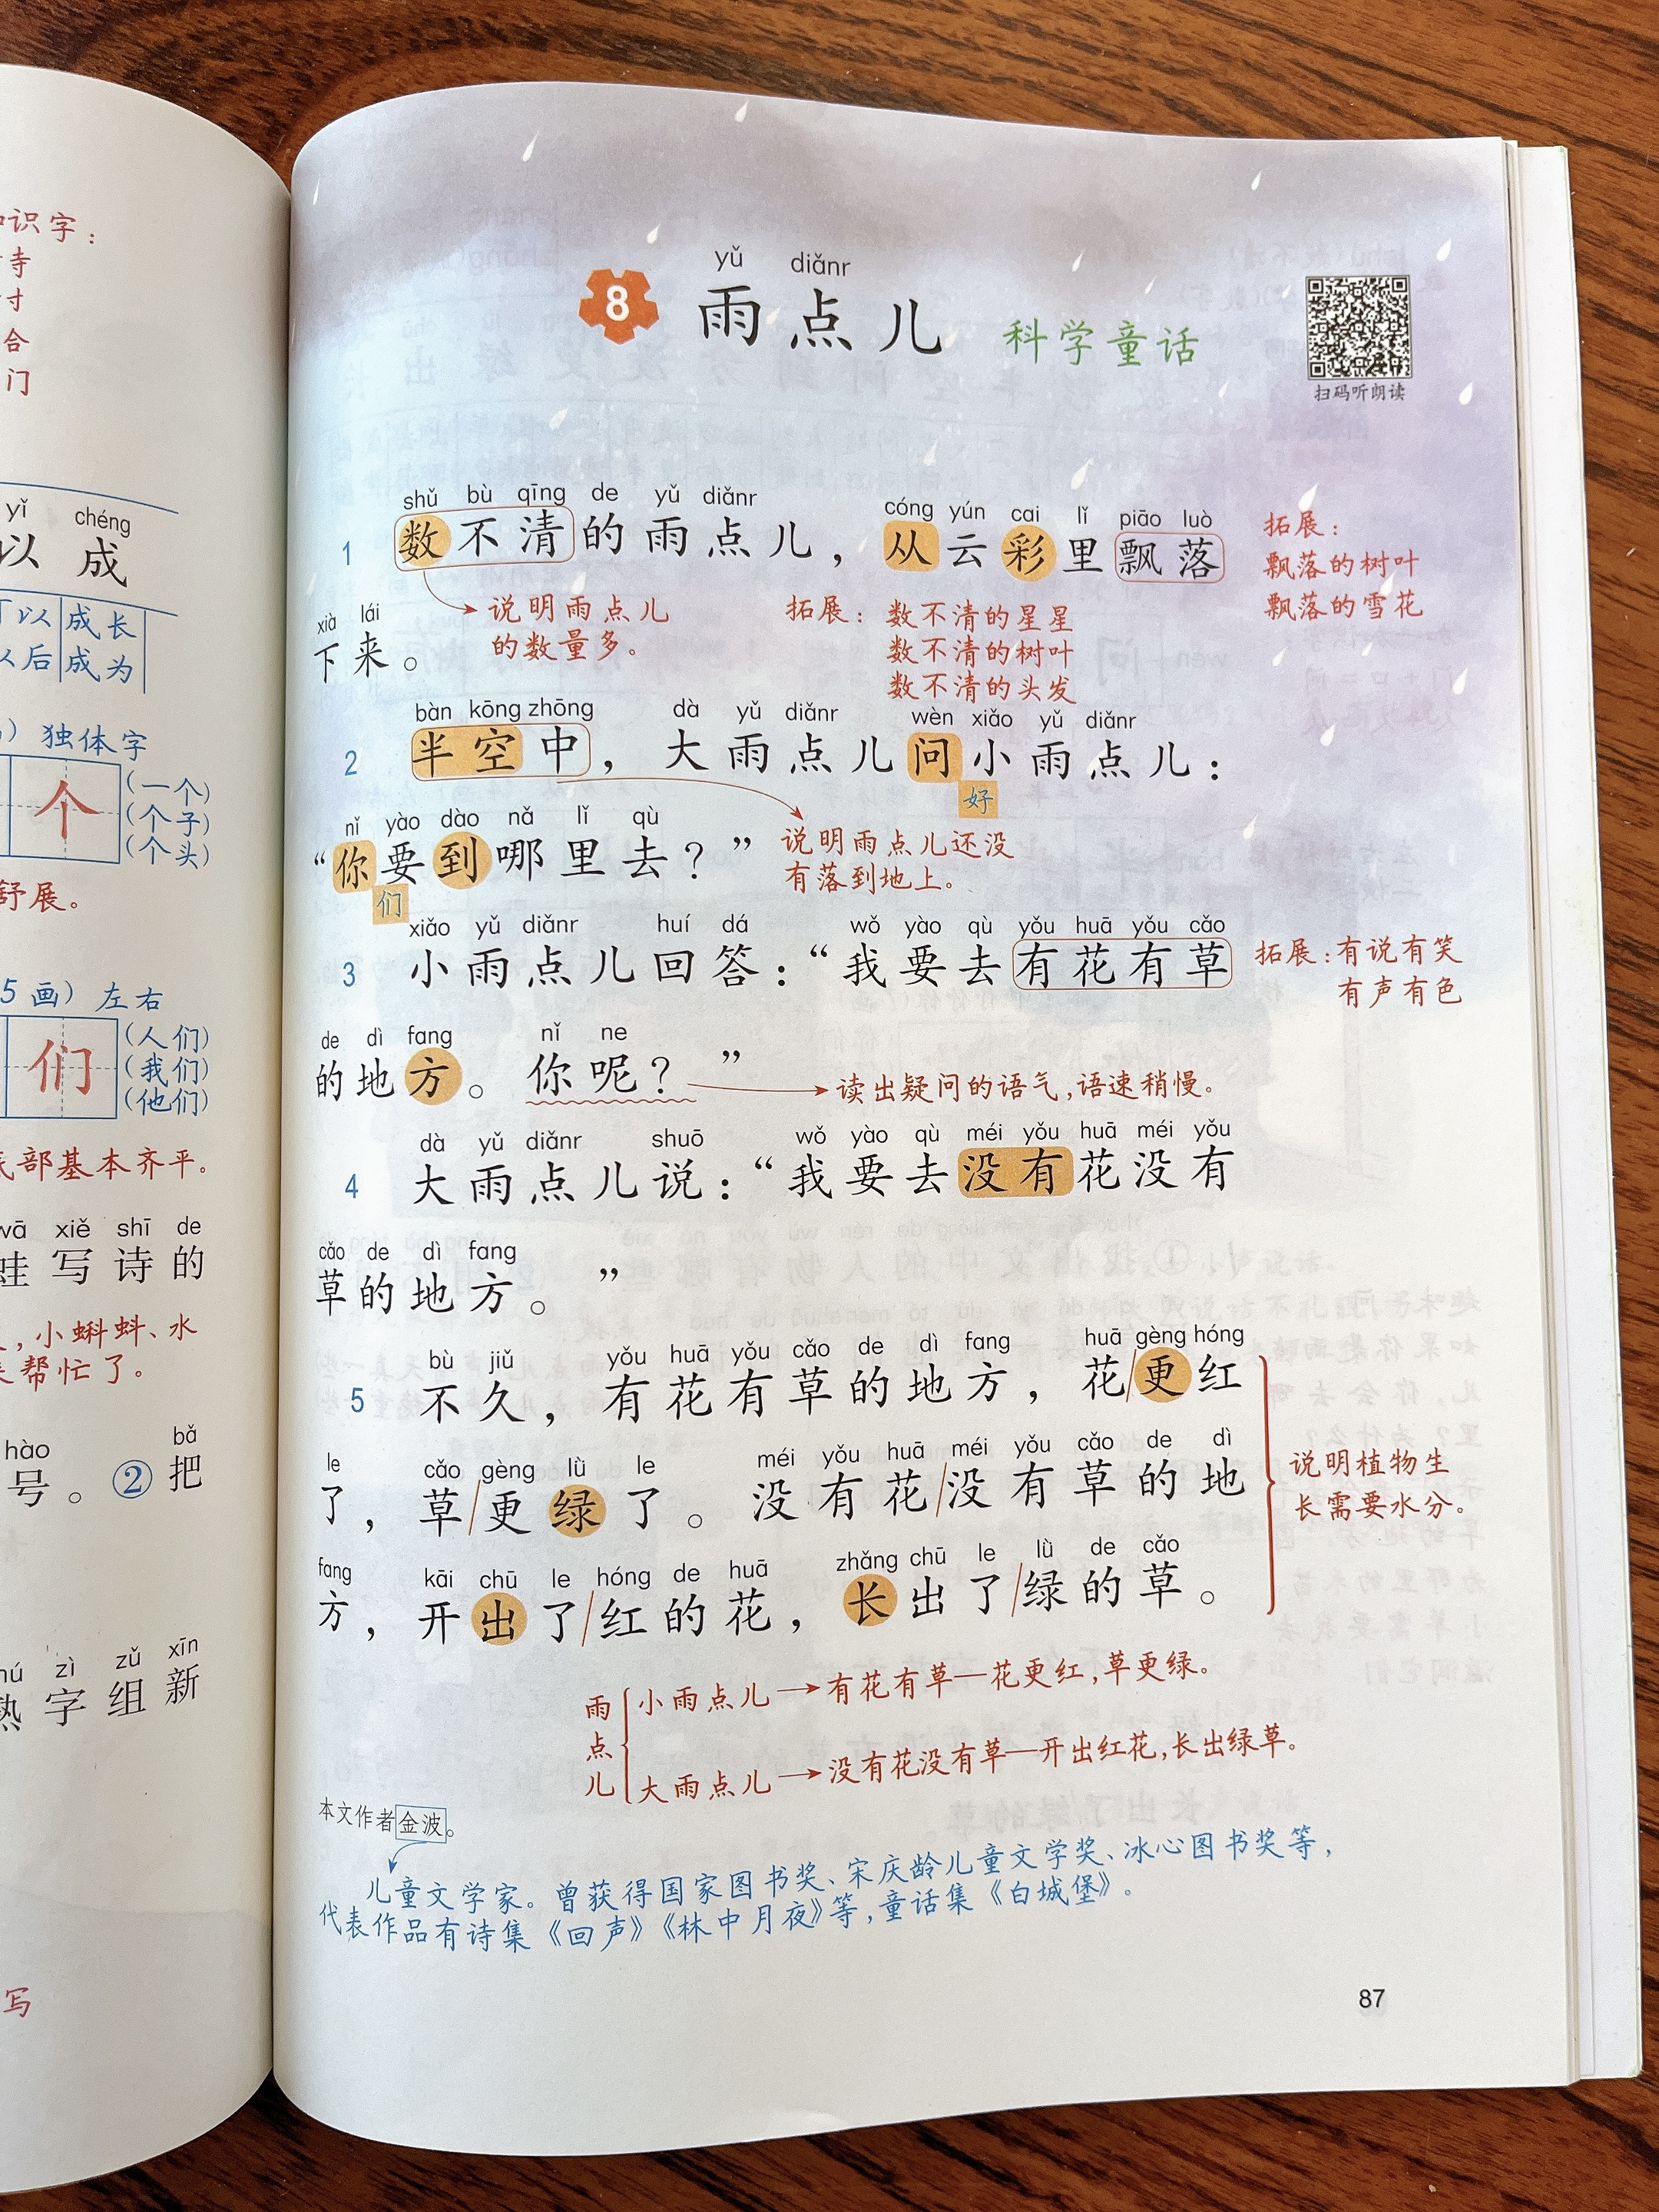 识字：
寺
寸
合
门
yǐ chéng
以 成
可以 成长
以后 成为
独体字
个
（一个）
（个子）
（个头）
舒展。
5画） 左右
们
（人们）
（我们）
（他们）
底部基本齐平。
wā xiě shī de
蛙写诗的
，小蝌蚪、水
来帮忙了。
hào bǎ
号。②把
zì zǔ xīn
熟字组新
写
yǔ diǎnr
8 雨点儿 科学童话
扫码听朗读
shǔ bù qīng de yǔ diǎnr cóng yún cai lǐ piāo luò
1 数不清的雨点儿，从云彩里飘落
拓展：
飘落的树叶
飘落的雪花
xià lái
下来。
说明雨点儿
的数量多。
拓展：数不清的星星
数不清的树叶
数不清的头发
bàn kōng zhōng dà yǔ diǎnr wèn xiǎo yǔ diǎnr
2 半空中，大雨点儿问小雨点儿：
好
nǐ yào dào nǎ lǐ qù
“你要到哪里去？”
们
说明雨点儿还没
有落到地上。
xiǎo yǔ diǎnr huí dá wǒ yào qù yǒu huā yǒu cǎo
3 小雨点儿回答：“我要去有花有草
拓展：有说有笑
有声有色
de dì fang nǐ ne
的地方。你呢？”
读出疑问的语气，语速稍慢。
dà yǔ diǎnr shuō wǒ yào qù méi yǒu huā méi yǒu
4 大雨点儿说：“我要去没有花没有
cǎo de dì fang
草的地方。”
bù jiǔ yǒu huā yǒu cǎo de dì fang huā gèng hóng
5 不久，有花有草的地方，花/更红
le cǎo gèng lǜ le méi yǒu huā méi yǒu cǎo de dì
了，草/更绿了。没有花/没有草的地
fang kāi chū le hóng de huā zhǎng chū le lǜ de cǎo
方，开出了/红的花，长出了/绿的草。
说明植物生
长需要水分。
雨点儿
小雨点儿→有花有草—花更红，草更绿。
大雨点儿→没有花没有草—开出红花，长出绿草。
本文作者金波。
儿童文学家。曾获得国家图书奖、宋庆龄儿童文学奖、冰心图书奖等，
代表作品有诗集《回声》《林中月夜》等，童话集《白城堡》。
87